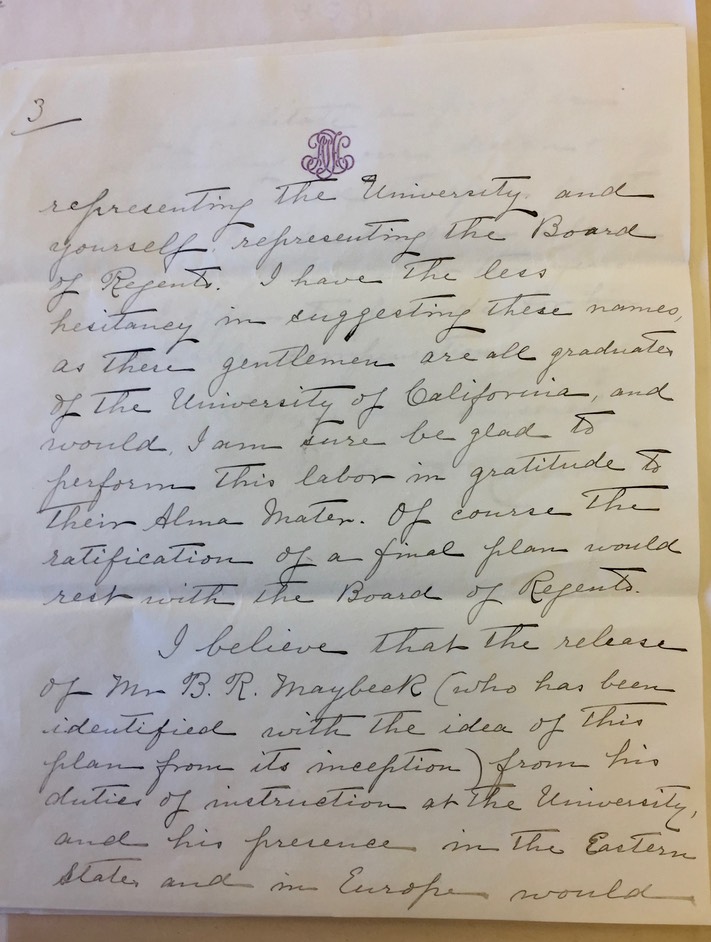 3
representing the University, and
yourself, representing the Board
of Regents. I have the less
hesitancy in suggesting these names,
as these gentlemen are all graduates
of the University of California, and
would, I am sure be glad to
perform this labor in gratitude to
their Alma Mater. Of course the
ratification of a final plan would
rest with the Board of Regents.
I believe that the release
of Mr B. R. Maybeck (who has been
identified with the idea of this
plan from its inception) from his
duties of instruction at the University,
and his presence in the Eastern
States and in Europe would